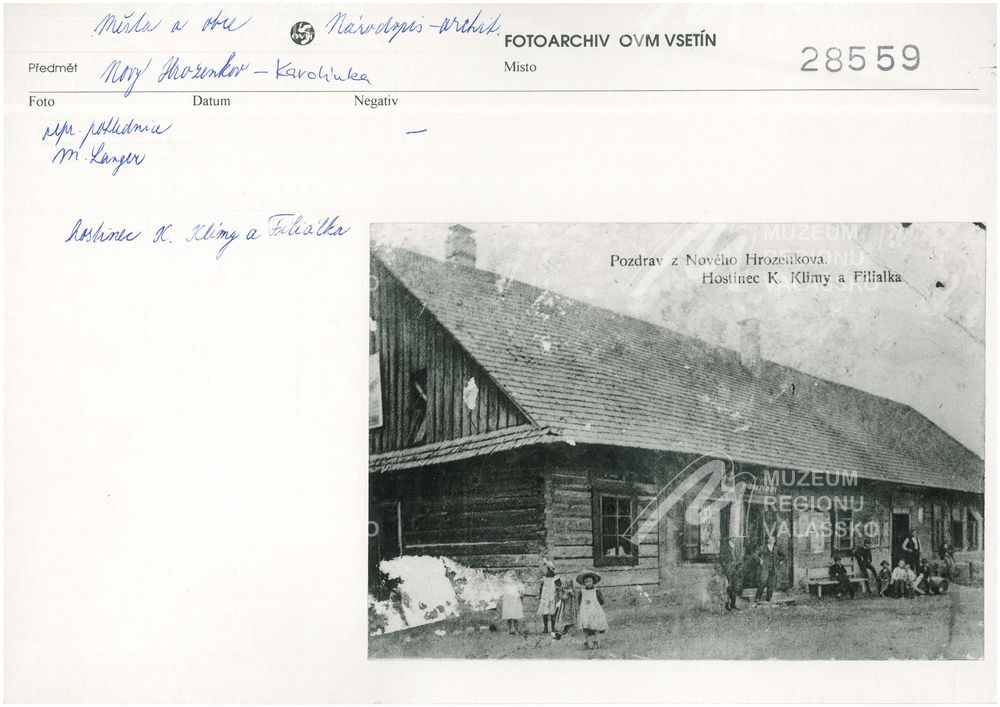 Města a obce
OVM
Národopis - archit.
FOTOARCHIV OVM VSETÍN
28559
Předmět
Nový Hrozenkov - Karolinka
Misto
Foto
Datum
Negativ
repr. pohlednice
—
M. Langer
hostinec K. Klímy a Filiálka
Pozdrav z Nového Hrozenkova.
Hostinec K. Klimy a Filialka
MUZEUM
REGIONU
VALAŠSKO